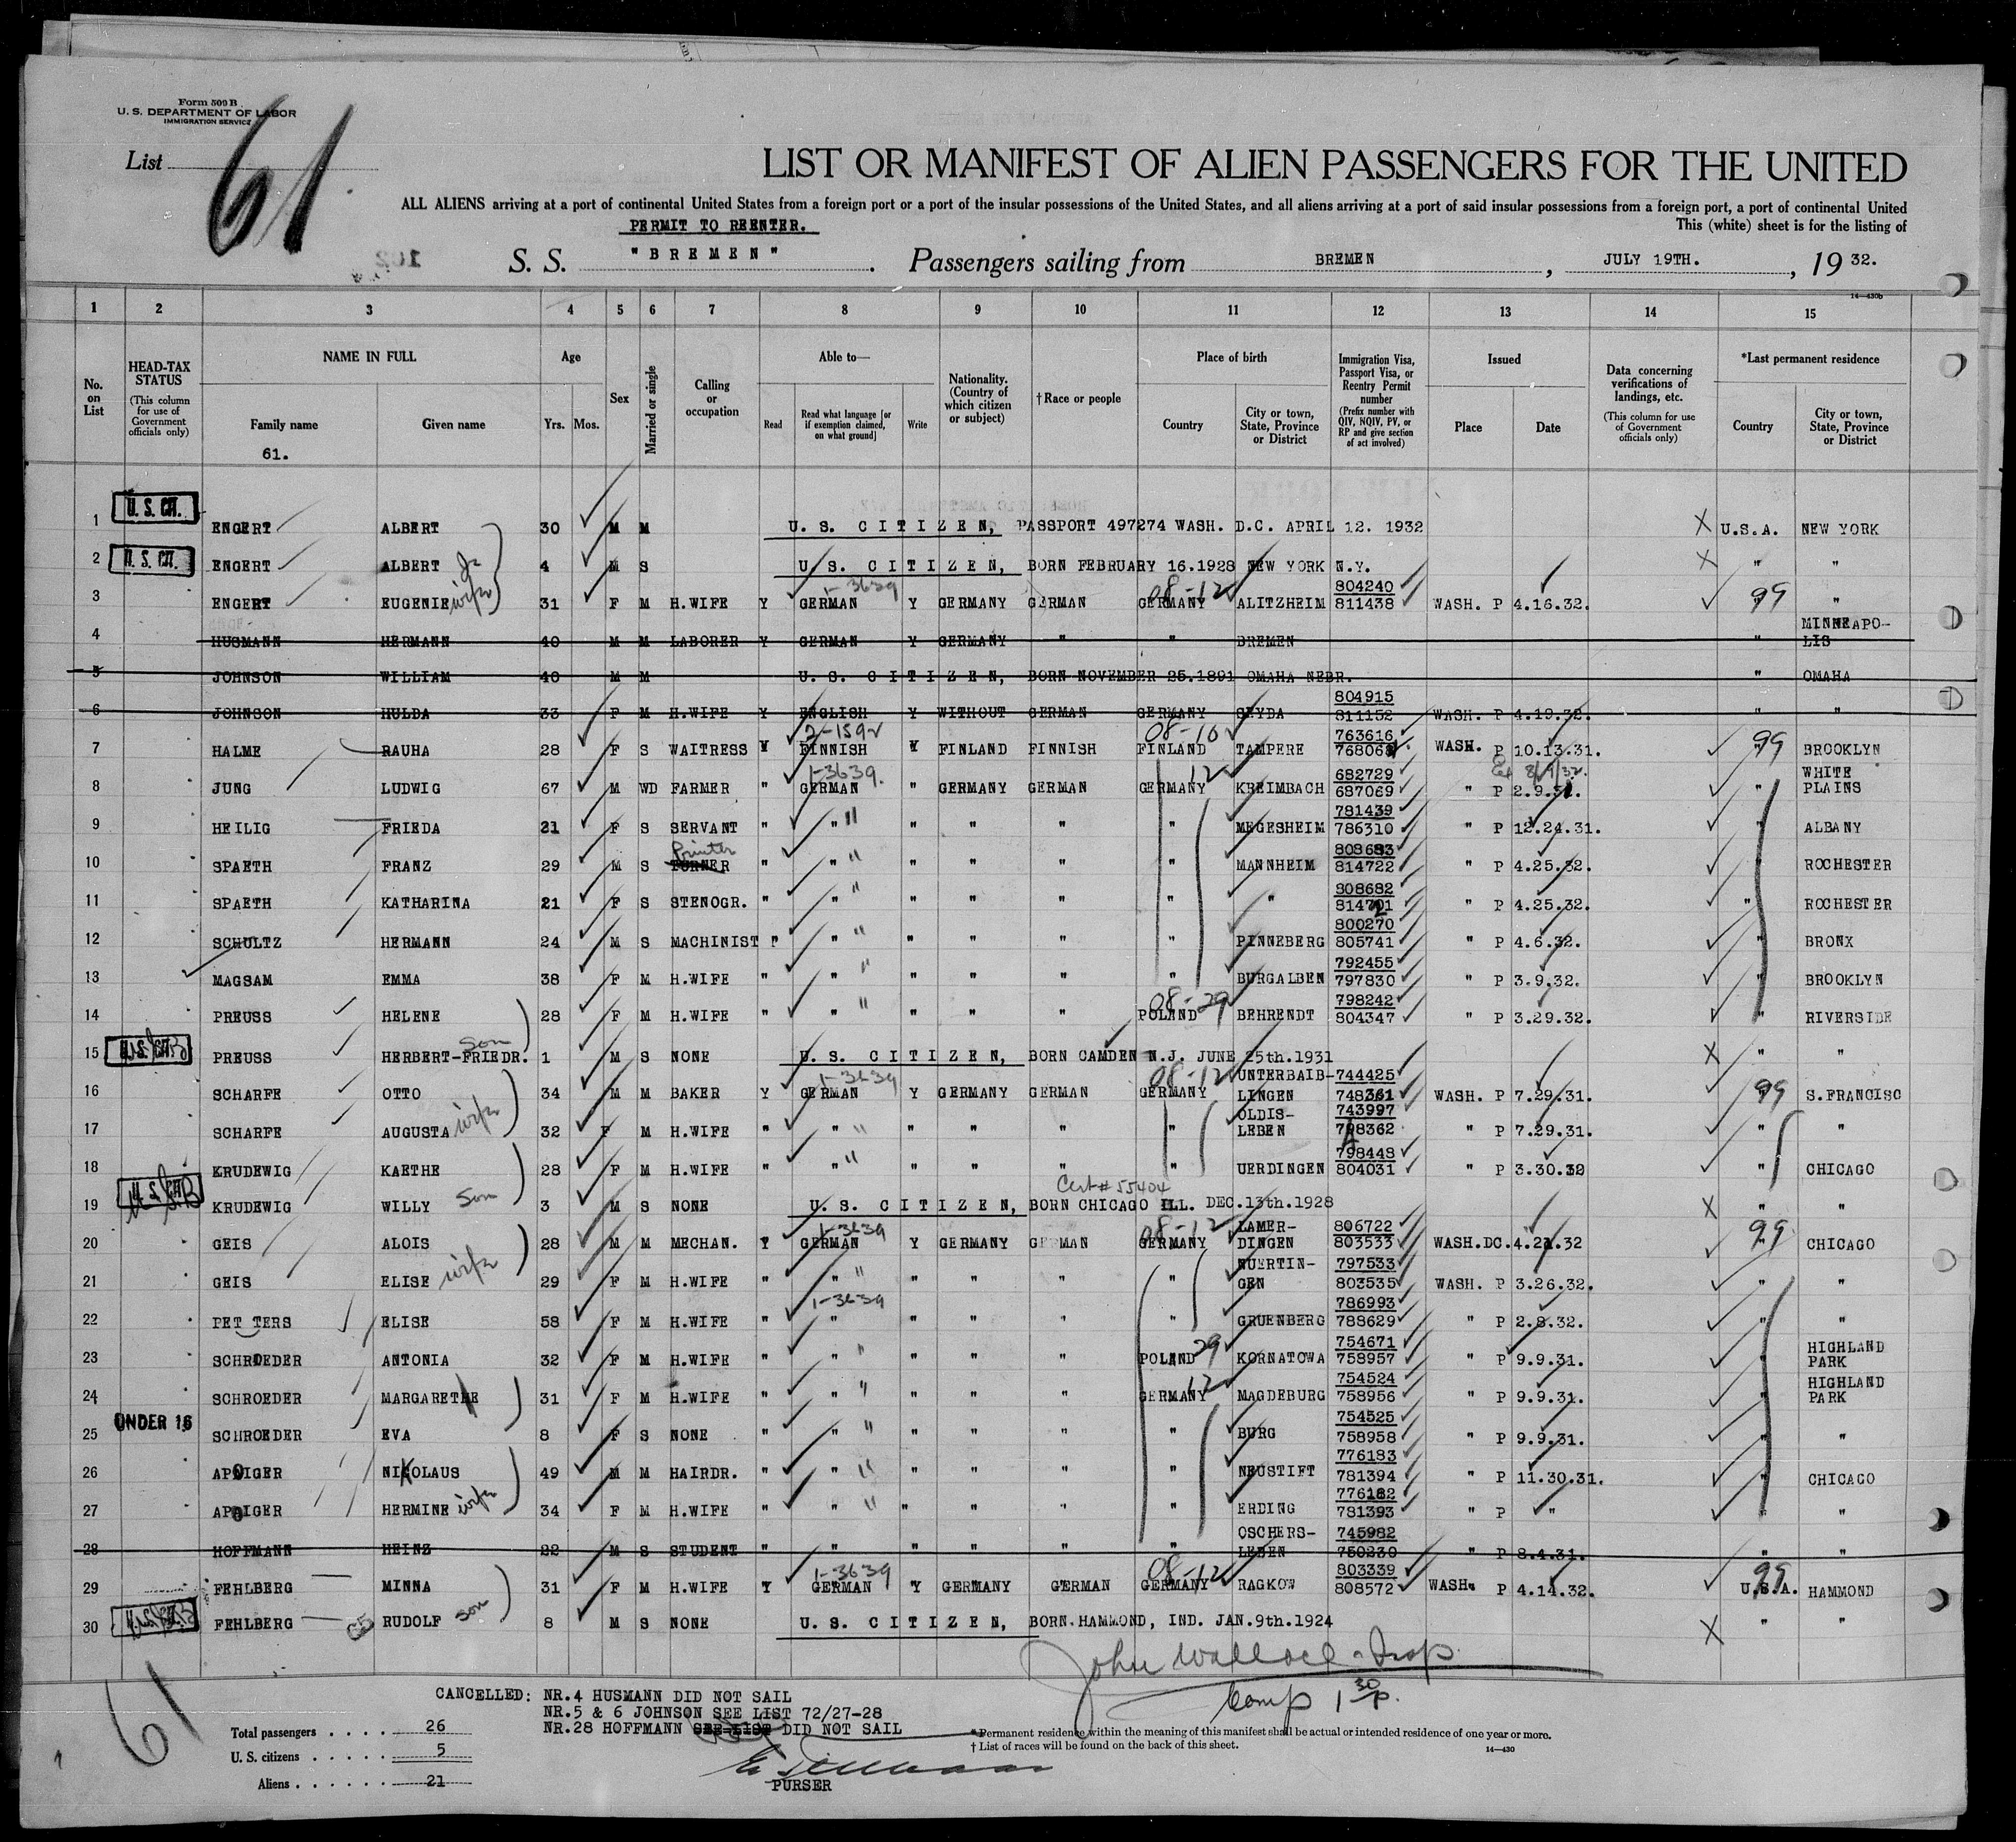 Form 500 B
U. S. DEPARTMENT OF LABOR
IMMIGRATION SERVICE
List 61
LIST OR MANIFEST OF ALIEN PASSENGERS FOR THE UNITED
ALL ALIENS arriving at a port of continental United States from a foreign port or a port of the insular possessions of the United States, and all aliens arriving at a port of said insular possessions from a foreign port, a port of continental United
This (white) sheet is for the listing of
PERMIT TO REENTER.
S. S. "BREMEN" . Passengers sailing from BREMEN , JULY 19TH. , 19 32.
14—430b
1 2 3 4 5 6 7 8 9 10 11 12 13 14 15
No. on List
HEAD-TAX STATUS (This column for use of Government officials only)
NAME IN FULL Family name Given name
Age Yrs. Mos.
Sex
Married or single
Calling or occupation
Able to— Read Read what language [or if exemption claimed, on what ground] Write
Nationality. (Country of which citizen or subject)
†Race or people
Place of birth Country City or town, State, Province or District
Immigration Visa, Passport Visa, or Reentry Permit number (Prefix number with QIV, NQIV, PV, or RP and give section of act involved)
Issued Place Date
Data concerning verifications of landings, etc. (This column for use of Government officials only)
*Last permanent residence Country City or town, State, Province or District
61.
1 U. S. CIT. ENGERT ALBERT 30 M M U. S. CITIZEN, PASSPORT 497274 WASH. D.C. APRIL 12. 1932 X U.S.A. NEW YORK
2 U. S. CIT. ENGERT ALBERT Jr 4 M S U. S. CITIZEN, BORN FEBRUARY 16.1928 NEW YORK N.Y. X " "
1-3639 08-12 804240
3 ENGERT EUGENIE wife 31 F M H.WIFE Y GERMAN Y GERMANY GERMAN GERMANY ALITZHEIM 811438 WASH. P 4.16.32. 99 "
4 HUSMANN HERMANN 40 M M LABORER Y GERMAN Y GERMANY " " BREMEN " MINNEAPO-LIS
5 JOHNSON WILLIAM 40 M M U. S. CITIZEN, BORN NOVEMBER 25.1891 OMAHA NEBR. " OMAHA
804915
6 JOHNSON HULDA 33 F M H.WIFE Y ENGLISH Y WITHOUT GERMAN GERMANY SEYDA 811152 WASH. P 4.19.32. " "
2-159 08-10 763616
7 HALME RAUHA 28 F S WAITRESS Y FINNISH Y FINLAND FINNISH FINLAND TAMPERE 76806 WASH. P 10.13.31. 99 BROOKLYN
1-3639. 12 682729 WHITE
8 JUNG LUDWIG 67 M WD FARMER " GERMAN " GERMANY GERMAN GERMANY KREIMBACH 687069 " P 2.9. " PLAINS
781439
9 HEILIG FRIEDA 21 F S SERVANT " " " " " " MEGESHEIM 786310 " P 12.24.31. ALBANY
Printer 808683
10 SPAETH FRANZ 29 M S TURNER " " " " " " MANNHEIM 814722 " P 4.25.32. ROCHESTER
808682
11 SPAETH KATHARINA 21 F S STENOGR. " " " " " " " " P 4.25.32. " ROCHESTER
800270
12 SCHULTZ HERMANN 24 M S MACHINIST " " " " " " PINNEBERG 805741 " P 4.6.32. " BRONX
792455
13 MAGSAM EMMA 38 F M H.WIFE " " " " " " BURGALBEN 797830 " P 3.9.32. " BROOKLYN
08-29 798242
14 PREUSS HELENE 28 F M H.WIFE " " " " " POLAND BEHRENDT 804347 " P 3.29.32. " RIVERSIDE
15 U.S. CIT. PREUSS HERBERT-FRIEDR. son 1 M S NONE U. S. CITIZEN, BORN CAMDEN N.J. JUNE 25th.1931 X " "
1-3639 08-12 UNTERBAIB- 744425
16 SCHARFE OTTO 34 M M BAKER Y GERMAN Y GERMANY GERMAN GERMANY LINGEN 748361 WASH. P 7.29.31. 99 S.FRANCISC
OLDIS- 743997
17 SCHARFE AUGUSTA wife 32 F M H.WIFE " " " " " " LEBEN 748362 " P 7.29.31. " "
798448
18 KRUDEWIG KAETHE 28 F M H.WIFE " " " " " " UERDINGEN 804031 " P 3.30.32 " CHICAGO
Cert # 55404
19 U. S. CIT. KRUDEWIG WILLY son 3 M S NONE U. S. CITIZEN, BORN CHICAGO ILL. DEC.13th.1928 X " "
1-3639 08-12 LAMER- 806722
20 GEIS ALOIS 28 M M MECHAN. Y GERMAN Y GERMANY GERMAN GERMANY DINGEN 803533 WASH.DC. 4.21.32 99 CHICAGO
NUERTIN- 797533
21 GEIS ELISE wife 29 F M H.WIFE " " " " " " GEN 803535 WASH. P 3.26.32. " "
1-3639 786993
22 PET TERS ELISE 58 F M H.WIFE " " " " " " GRUENBERG 788629 " P 2.8.32. " "
29 754671 HIGHLAND
23 SCHROEDER ANTONIA 32 F M H.WIFE " " " " " POLAND KORNATOWA 758957 " P 9.9.31. " PARK
12 754524 HIGHLAND
24 SCHROEDER MARGARETHE 31 F M H.WIFE " " " " " GERMANY MAGDEBURG 758956 " P 9.9.31. " PARK
UNDER 16 754525
25 SCHROEDER EVA 8 F S NONE " " " " " " BURG 758958 " P 9.9.31. " "
776183
26 APOIGER NIKOLAUS 49 M M HAIRDR. " " " " " " NEUSTIFT 781394 " P 11.30.31. " CHICAGO
776182
27 APOIGER HERMINE wife 34 F M H.WIFE " " " " " " ERDING 781393 " P " " "
OSCHERS- 745982
28 HOFFMANN HEINZ 22 M S STUDENT " " " " " " LEBEN 750230 " P 8.4.31. " "
1-3639 08-12 803339 99
29 FEHLBERG MINNA 31 F M H.WIFE Y GERMAN Y GERMANY GERMAN GERMANY RAGKOW 808572 WASH. P 4.14.32. U.S.A. HAMMOND
30 FEHLBERG RUDOLF son 8 M S NONE U. S. CITIZEN, BORN.HAMMOND, IND. JAN.9th.1924 X " "
John Wallace Insp.
Comp 1 30 P.
61
CANCELLED: NR.4 HUSMANN DID NOT SAIL
NR.5 & 6 JOHNSON SEE LIST 72/27-28
NR.28 HOFFMANN SEE LIST DID NOT SAIL
Total passengers . . . . 26
U. S. citizens . . . . . 5
Aliens . . . . . . 21
PURSER
*Permanent residence within the meaning of this manifest shall be actual or intended residence of one year or more.
† List of races will be found on the back of this sheet.
14—430